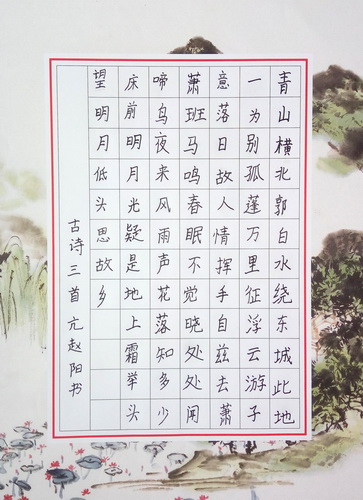 青山横北郭白水绕东城此地
一为别孤蓬万里征浮云游子
意落日故人情挥手自兹去萧
萧班马鸣春眠不觉晓处处闻
啼鸟夜来风雨声花落知多少
床前明月光疑是地上霜举头
望明月低头思故乡
古诗三首 亢赵阳书